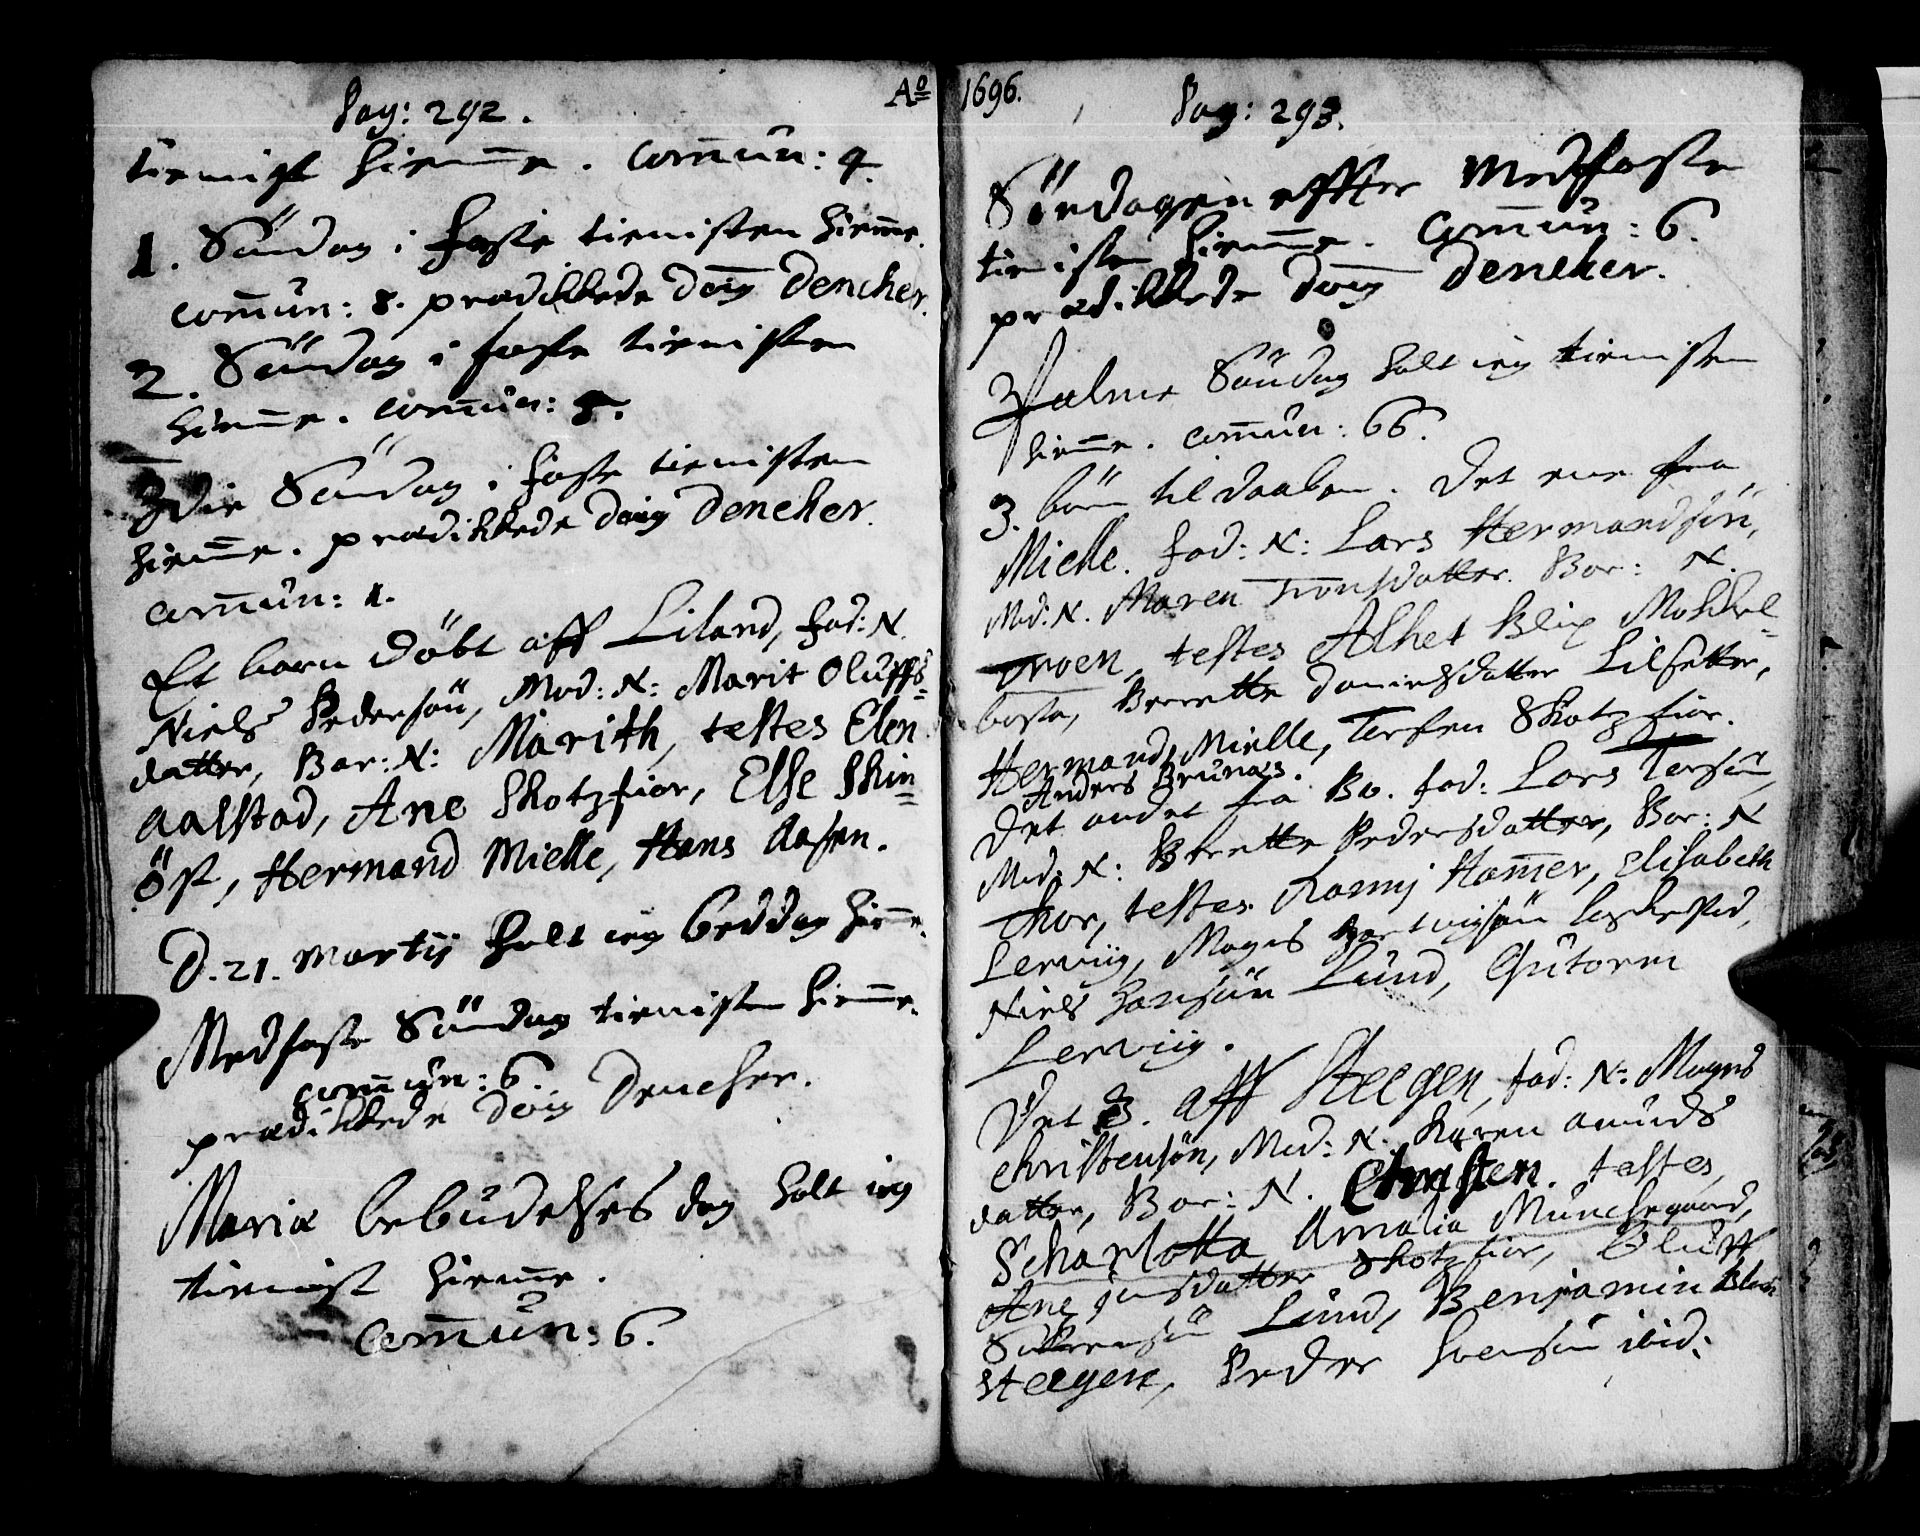 Pag: 292.
tienist hiemme. Com̄un: 4.
1. Söndag i faste tienisten hiem̄e.
com̄un: 8. prædikkede doig Dencker.
2. Söndag i faste tienisten
hiem̄e. com̄un: 8.
3die Söndag i faste tienisten
hiem̄e. prædikkede doig Dencker.
com̄un: 1.
Et barn döbt aff Liland, fad: N.
Niels Pedersön, Mod: N: Marit Oluffs=
datter, Bar: N: Marith, testes Elen
Aalstad, Ane Skotzfior, Else Skin=
öst, Hermand Mielle, Hans Aasen.
D. 21. Martij holt ieg beddag hiem̄e.
Medfaste Söndag tienisten hiem̄e.
com̄un: 6.
prædikkede doig Dencker.
Mariæ bebudelses dag holt ieg
tienist hiemme.
Com̄un: 6.
Aº 1696.
Pag: 293.
Söndagen effter Medfaste
tienisten hiem̄e. Com̄un: 6.
prædikkede doig Dencker.
Palme Söndag holt ieg tienisten
hiem̄e. com̄un: 66.
3. börn til daaben. Det ene fra
Mielle. fad: N: Lars Hermandsön,
Mod: N. Maren Tronsdatter. Bar: N.
Troen, testes Alhet Blix Mokkel=
boste, Berrette Danielsdatter Lilsetter,
Hermand Mielle, Torsten Skotzfior.
Anders Brunaas.
Det andet fra Bö. fad: Lars Torsön,
Mod: N: Berette Pedersdatter, Bar: N
Thor, testes Ram̄j Ham̄er, Elisabeth
Lerviig, Mogns Hartvigsön Laskestad,
Niels Hansön Lund, Gutorm
Lerviig.
Det 3. aff Steegen, fad: N: Mogns
Christensön, Mod: N. Karen Amunds
datter, Bar: N. Christen. testes,
Scharlotta Amalia Munchegaard,
Ane jensdatter Skotzfior, Oluff
Sörensön Lund, Benjamin Blix
Steegen, Peder Svensön ibid: